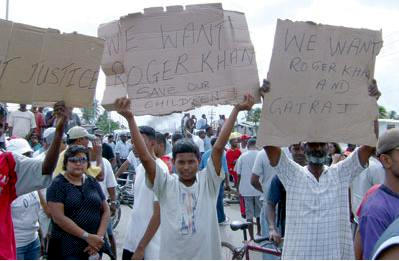 T JUSTICE
WE WANT
ROGER KHAN
SAVE OUR
CHILDREN
WE WANT
ROGER KHAN
AND
GAJRAJ